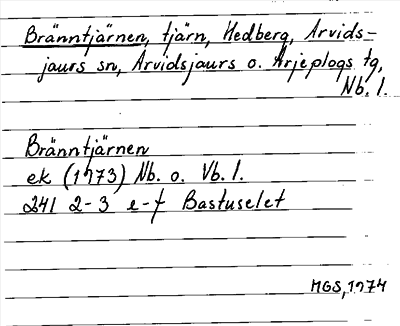 Bränntjärnen, tjärn, Hedberg, Arvids-
jaurs sn, Arvidsjaurs o. Arjeplogs tg,
Nb. l.
Bränntjärnen
ek (1973) Nb. o. Vb. l.
241 2-3 e-f Bastuselet
MGS, 1974